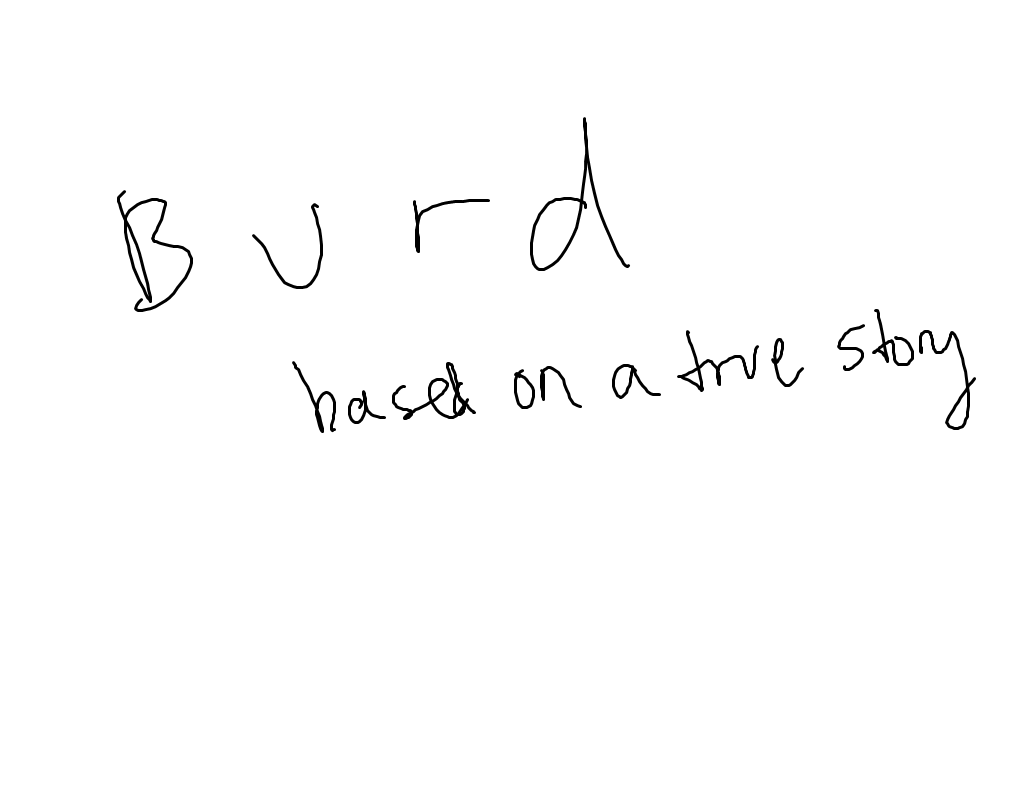 Burd
based on a true story